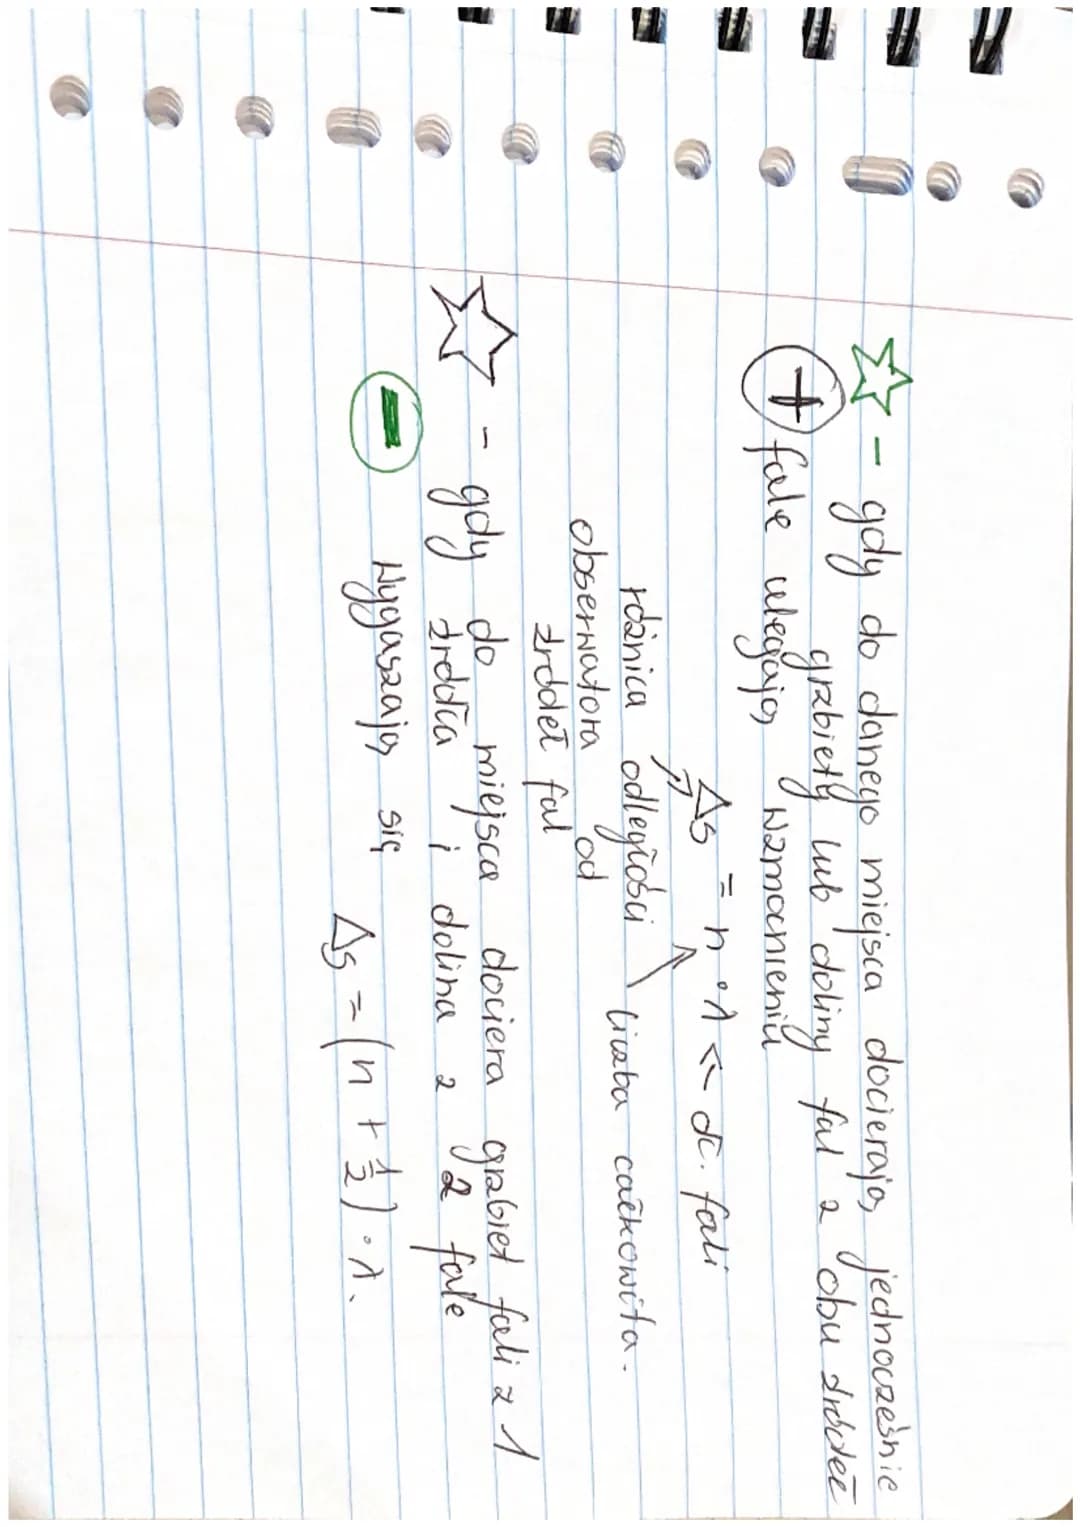 ☆ - gdy do danego miejsca docierają jednocześnie
grzbiety lub doliny fal z obu źródeł
+ fale ulegają wzmocnieniu
Δs = n · λ <- dł. fali
różnica odległości
liczba całkowita.
obserwatora od
źródeł fal
☆ - gdy do miejsca dociera grzbiet fali z 1
źródła i dolina z 2 fale
- wygaszają się
Δs = (n + 1/2) · λ.